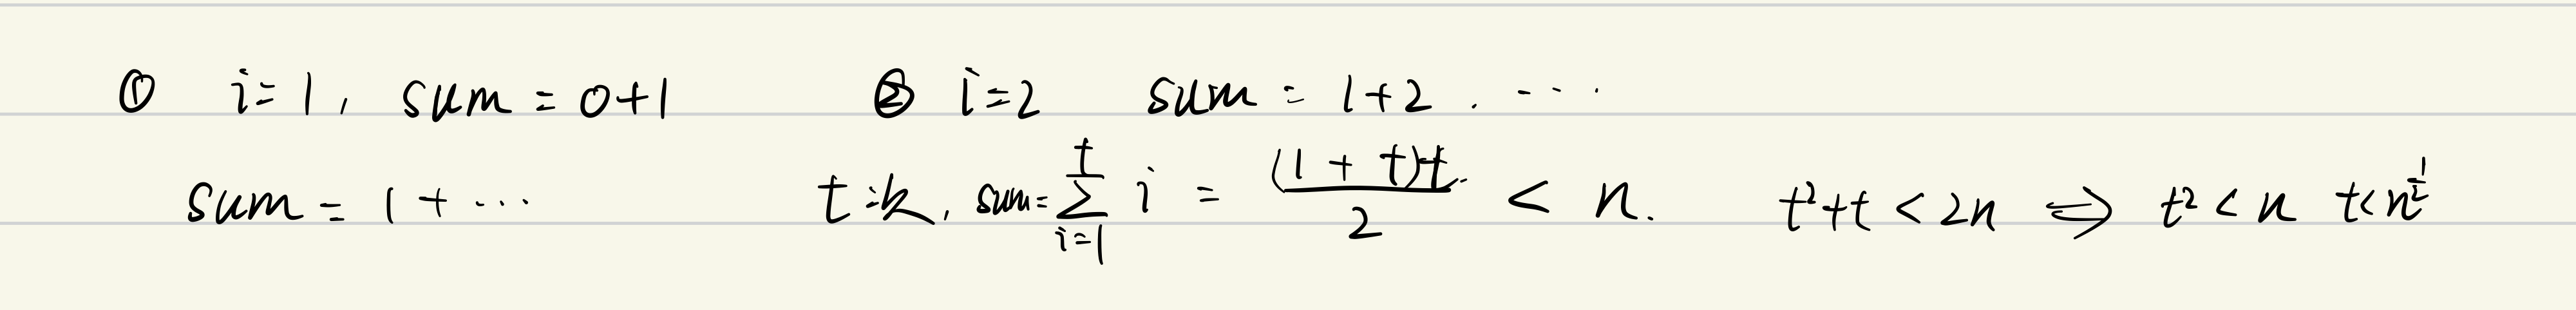 ① i=1, sum=0+1 ② i=2 sum=1+2. ...
sum=1+... t=k, sum=∑_{i=1}^{t} i = (1+t)t/2 < n. t²+t<2n ⟺ t²<n t<n^{1/2}